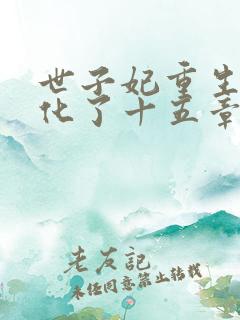 世子妃重生
化了十五章
老友記
未经同意禁止转载